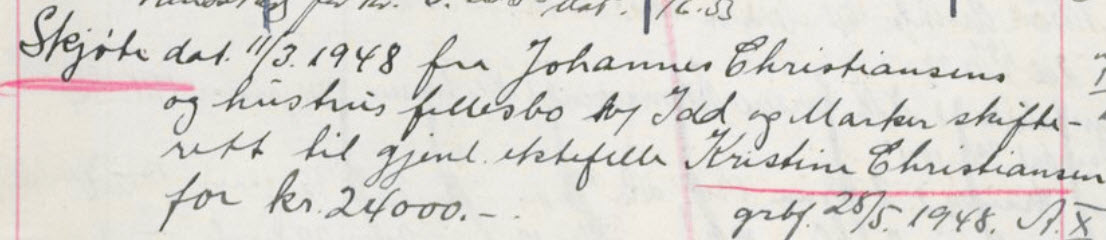 dat. 1/6.53
Skjøte dat. 11/3.1948 fra Johannes Christiansens
og hustrus fellesbo v/ Idd og Marker skifte-
rett til gjenl. ektefelle Kristine Christiansen
for kr. 24000.-
grbf. 28/5.1948. A. X